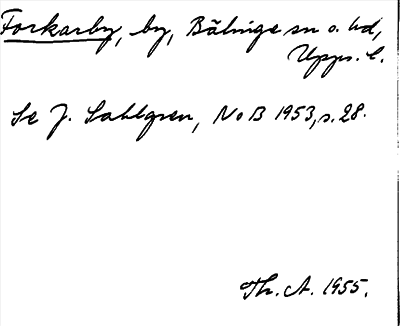 Forkarby, by, Bälinge sn o. hd,
Upps. l.
Se J. Sahlgren, NoB 1953, s. 28.
Th. A. 1955.